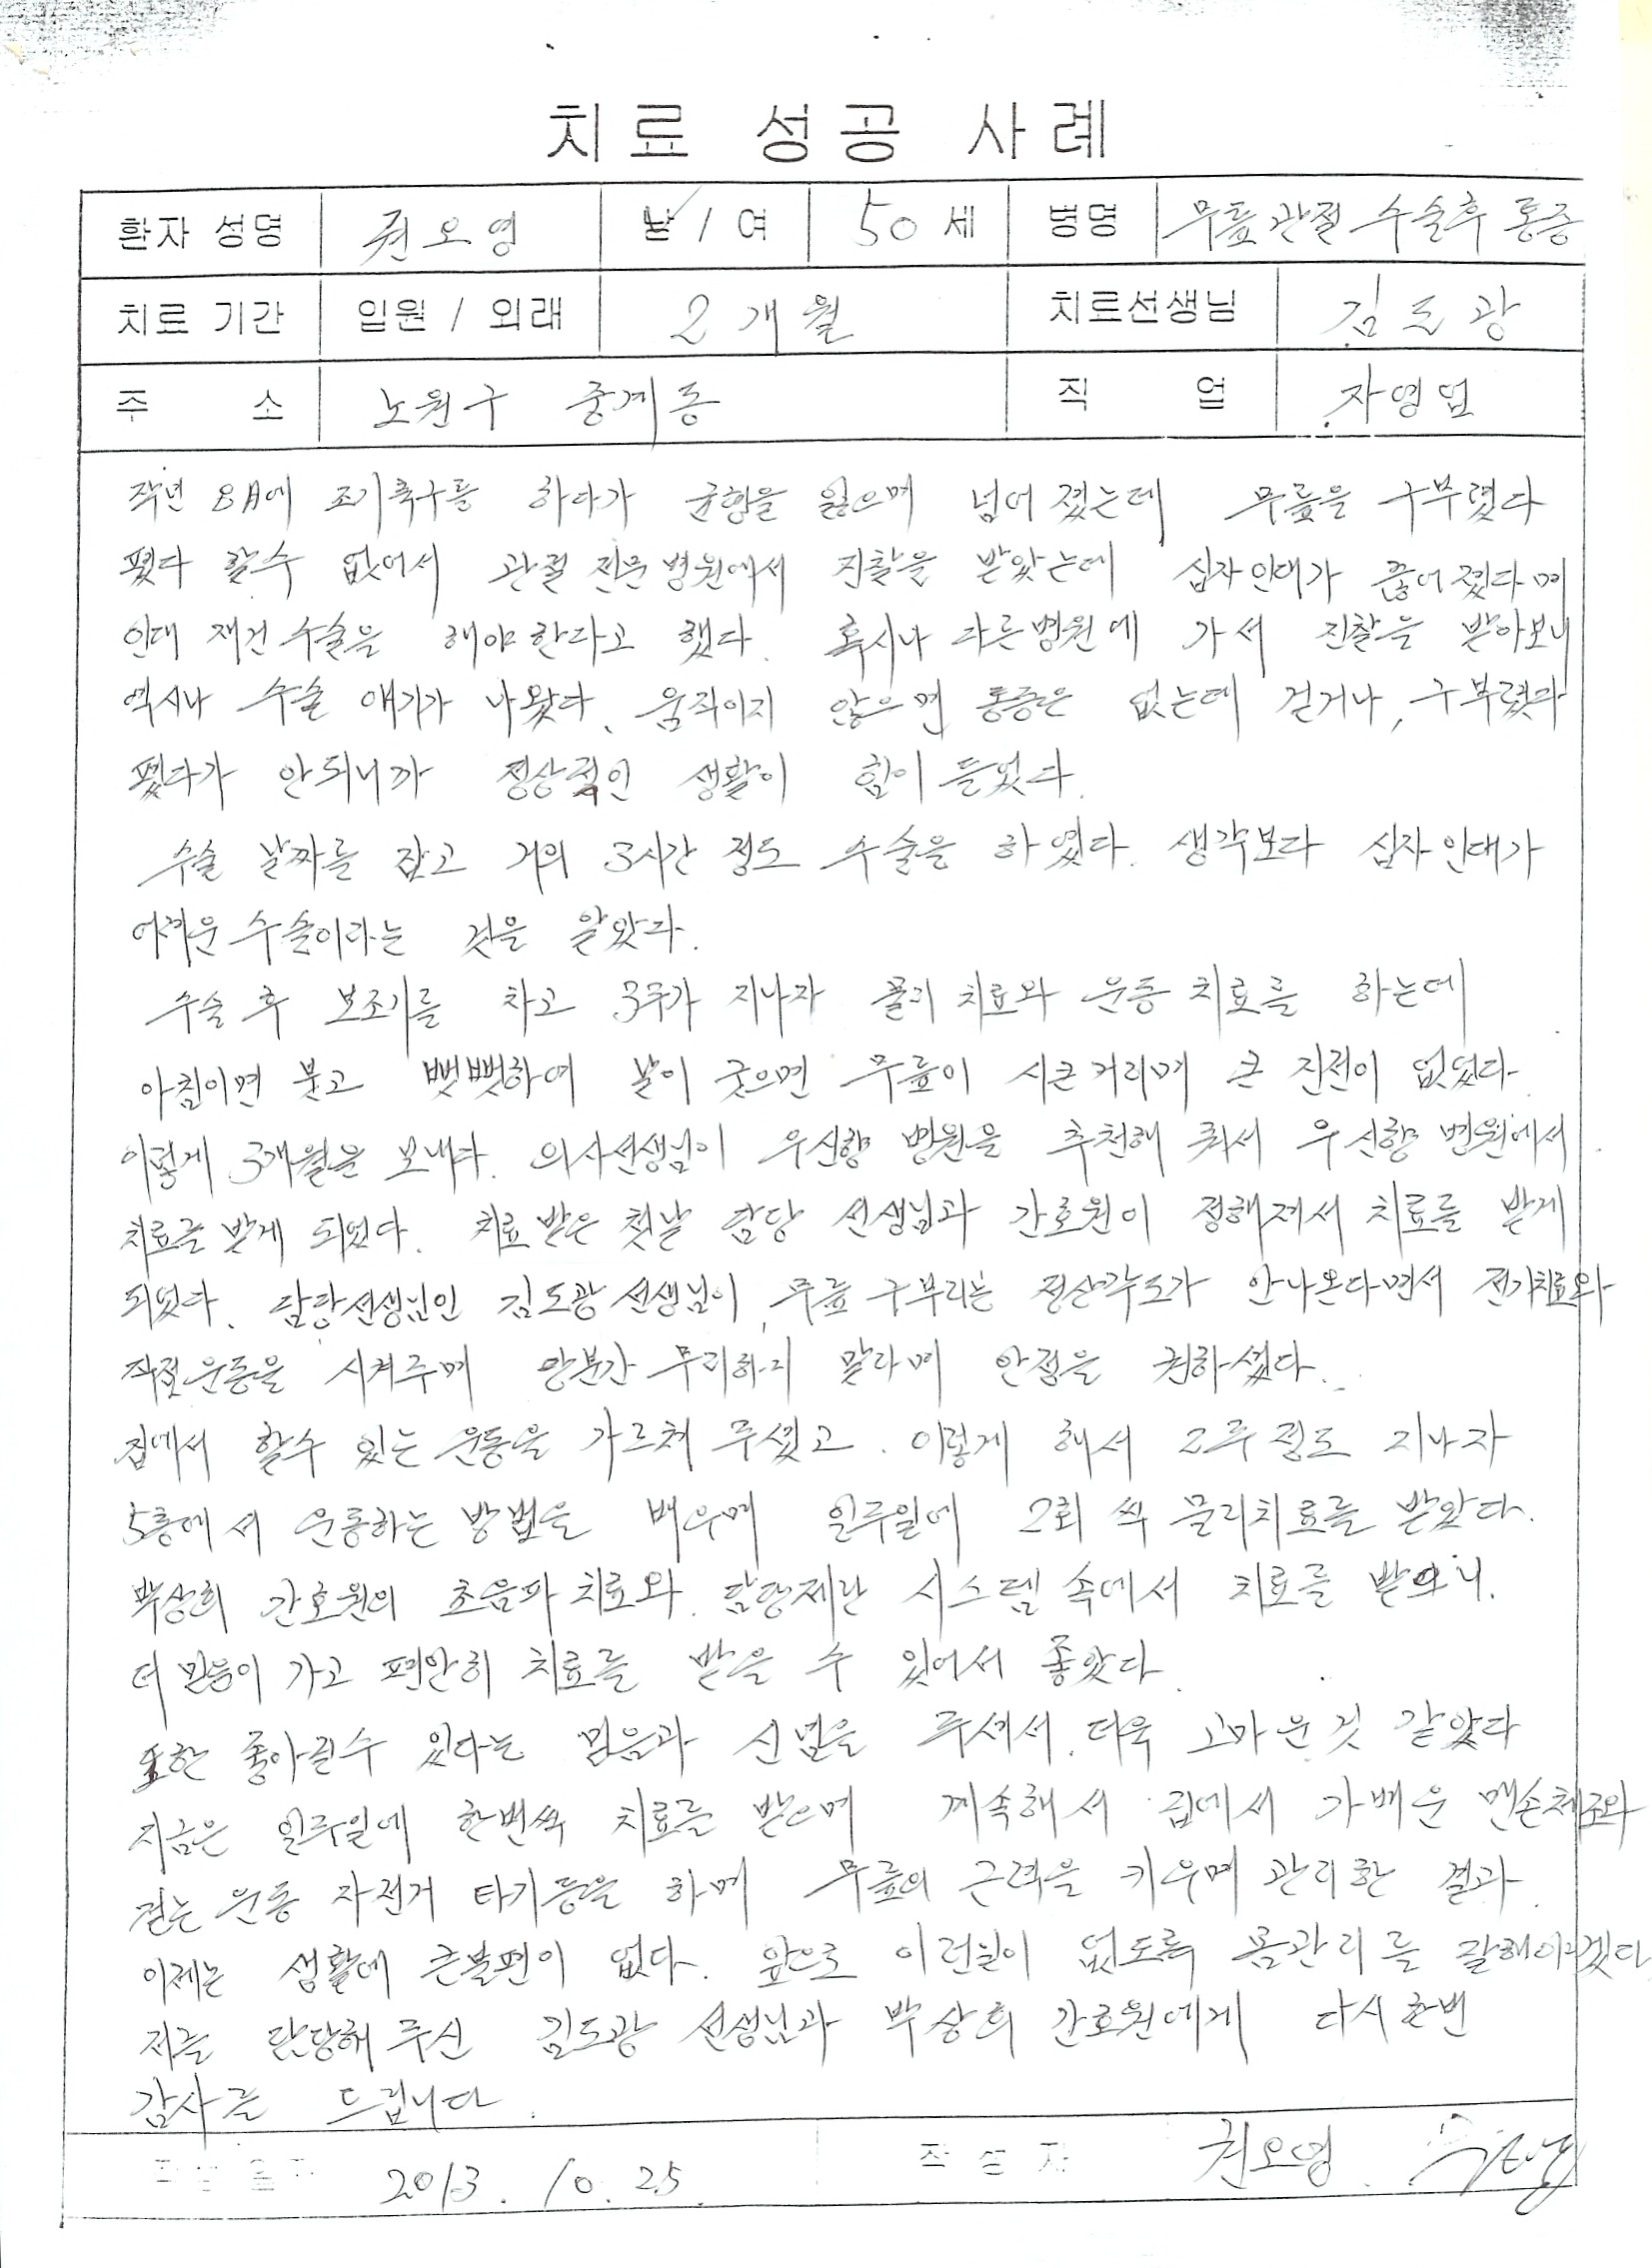 치료 성공 사례
환자 성명 권오영 남 / 여 50 세 병명 무릎관절 수술후 통증
치료 기간 입원 / 외래 2개월 치료선생님 김도광
주 소 노원구 중계동 직 업 자영업
작년 8月에 조기축구를 하다가 균형을 잃으며 넘어졌는데 무릎을 구부렸다
폈다 할수 없어서 관절 전문병원에서 진찰을 받았는데 십자인대가 끊어졌다며
인대 재건수술을 해야한다고 했다. 혹시나 다른병원에 가서 진찰을 받아보니
역시나 수술 얘기가 나왔다. 움직이지 않으면 통증은 없는데 걷거나, 구부렸다
폈다가 안되니까 정상적인 생활이 힘이 들었다.
수술 날짜를 잡고 거의 3시간 정도 수술을 하였다. 생각보다 십자인대가
어려운 수술이라는 것을 알았다.
수술 후 보조기를 차고 3주가 지나자 물리 치료와 운동 치료를 하는데
아침이면 붓고 뻣뻣하여 날이 궂으면 무릎이 시큰거리며 큰 진전이 없었다.
이렇게 3개월을 보내다. 의사선생님이 우신향 병원을 추천해 줘서 우신향 병원에서
치료를 받게 되었다. 치료 받은 첫날 담당 선생님과 간호원이 정해져서 치료를 받게
되었다. 담당선생님인 김도광 선생님이, 무릎 구부리는 정상각도가 안나온다면서 전기치료와
직접운동을 시켜주며 당분간 무리하지 말라며 안정을 권하셨다.
집에서 할수 있는 운동을 가르쳐 주셨고. 이렇게 해서 2주 정도 지나자
5층에서 운동하는 방법을 배우며 일주일에 2회 씩 물리치료를 받았다.
박상희 간호원의 초음파 치료와. 담당제란 시스템 속에서 치료를 받으니.
더 믿음이 가고 편안히 치료를 받을 수 있어서 좋았다.
또한 좋아질수 있다는 믿음과 신념을 주셔서. 더욱 고마운것 같았다
지금은 일주일에 한번씩 치료를 받으며 계속해서 집에서 가벼운 맨손체조와
걷는 운동 자전거 타기등을 하며 무릎의 근력을 키우며 관리한 결과.
이제는 생활에 큰불편이 없다. 앞으로 이런일이 없도록 몸관리를 잘해야겠다
저를 담당해 주신 김도광 선생님과 박상희 간호원에게 다시한번
감사를 드립니다.
작성일자 2013. 10. 25. 작성자 권오영